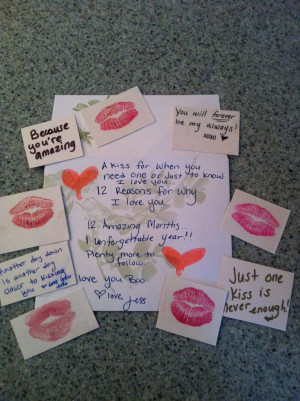 Because
you're
amazing
You will forever
be my always!
xoxo
A kiss for when you
need one or just to know
I love you.
12 Reasons for Why
I love you.
12 Amazing Months
1 unforgettable year!!
Plenty more to
follow.
love you Boo
love,
Jess
Another day down
is another day
closer to kissing
you
Just one
kiss is
never enough!